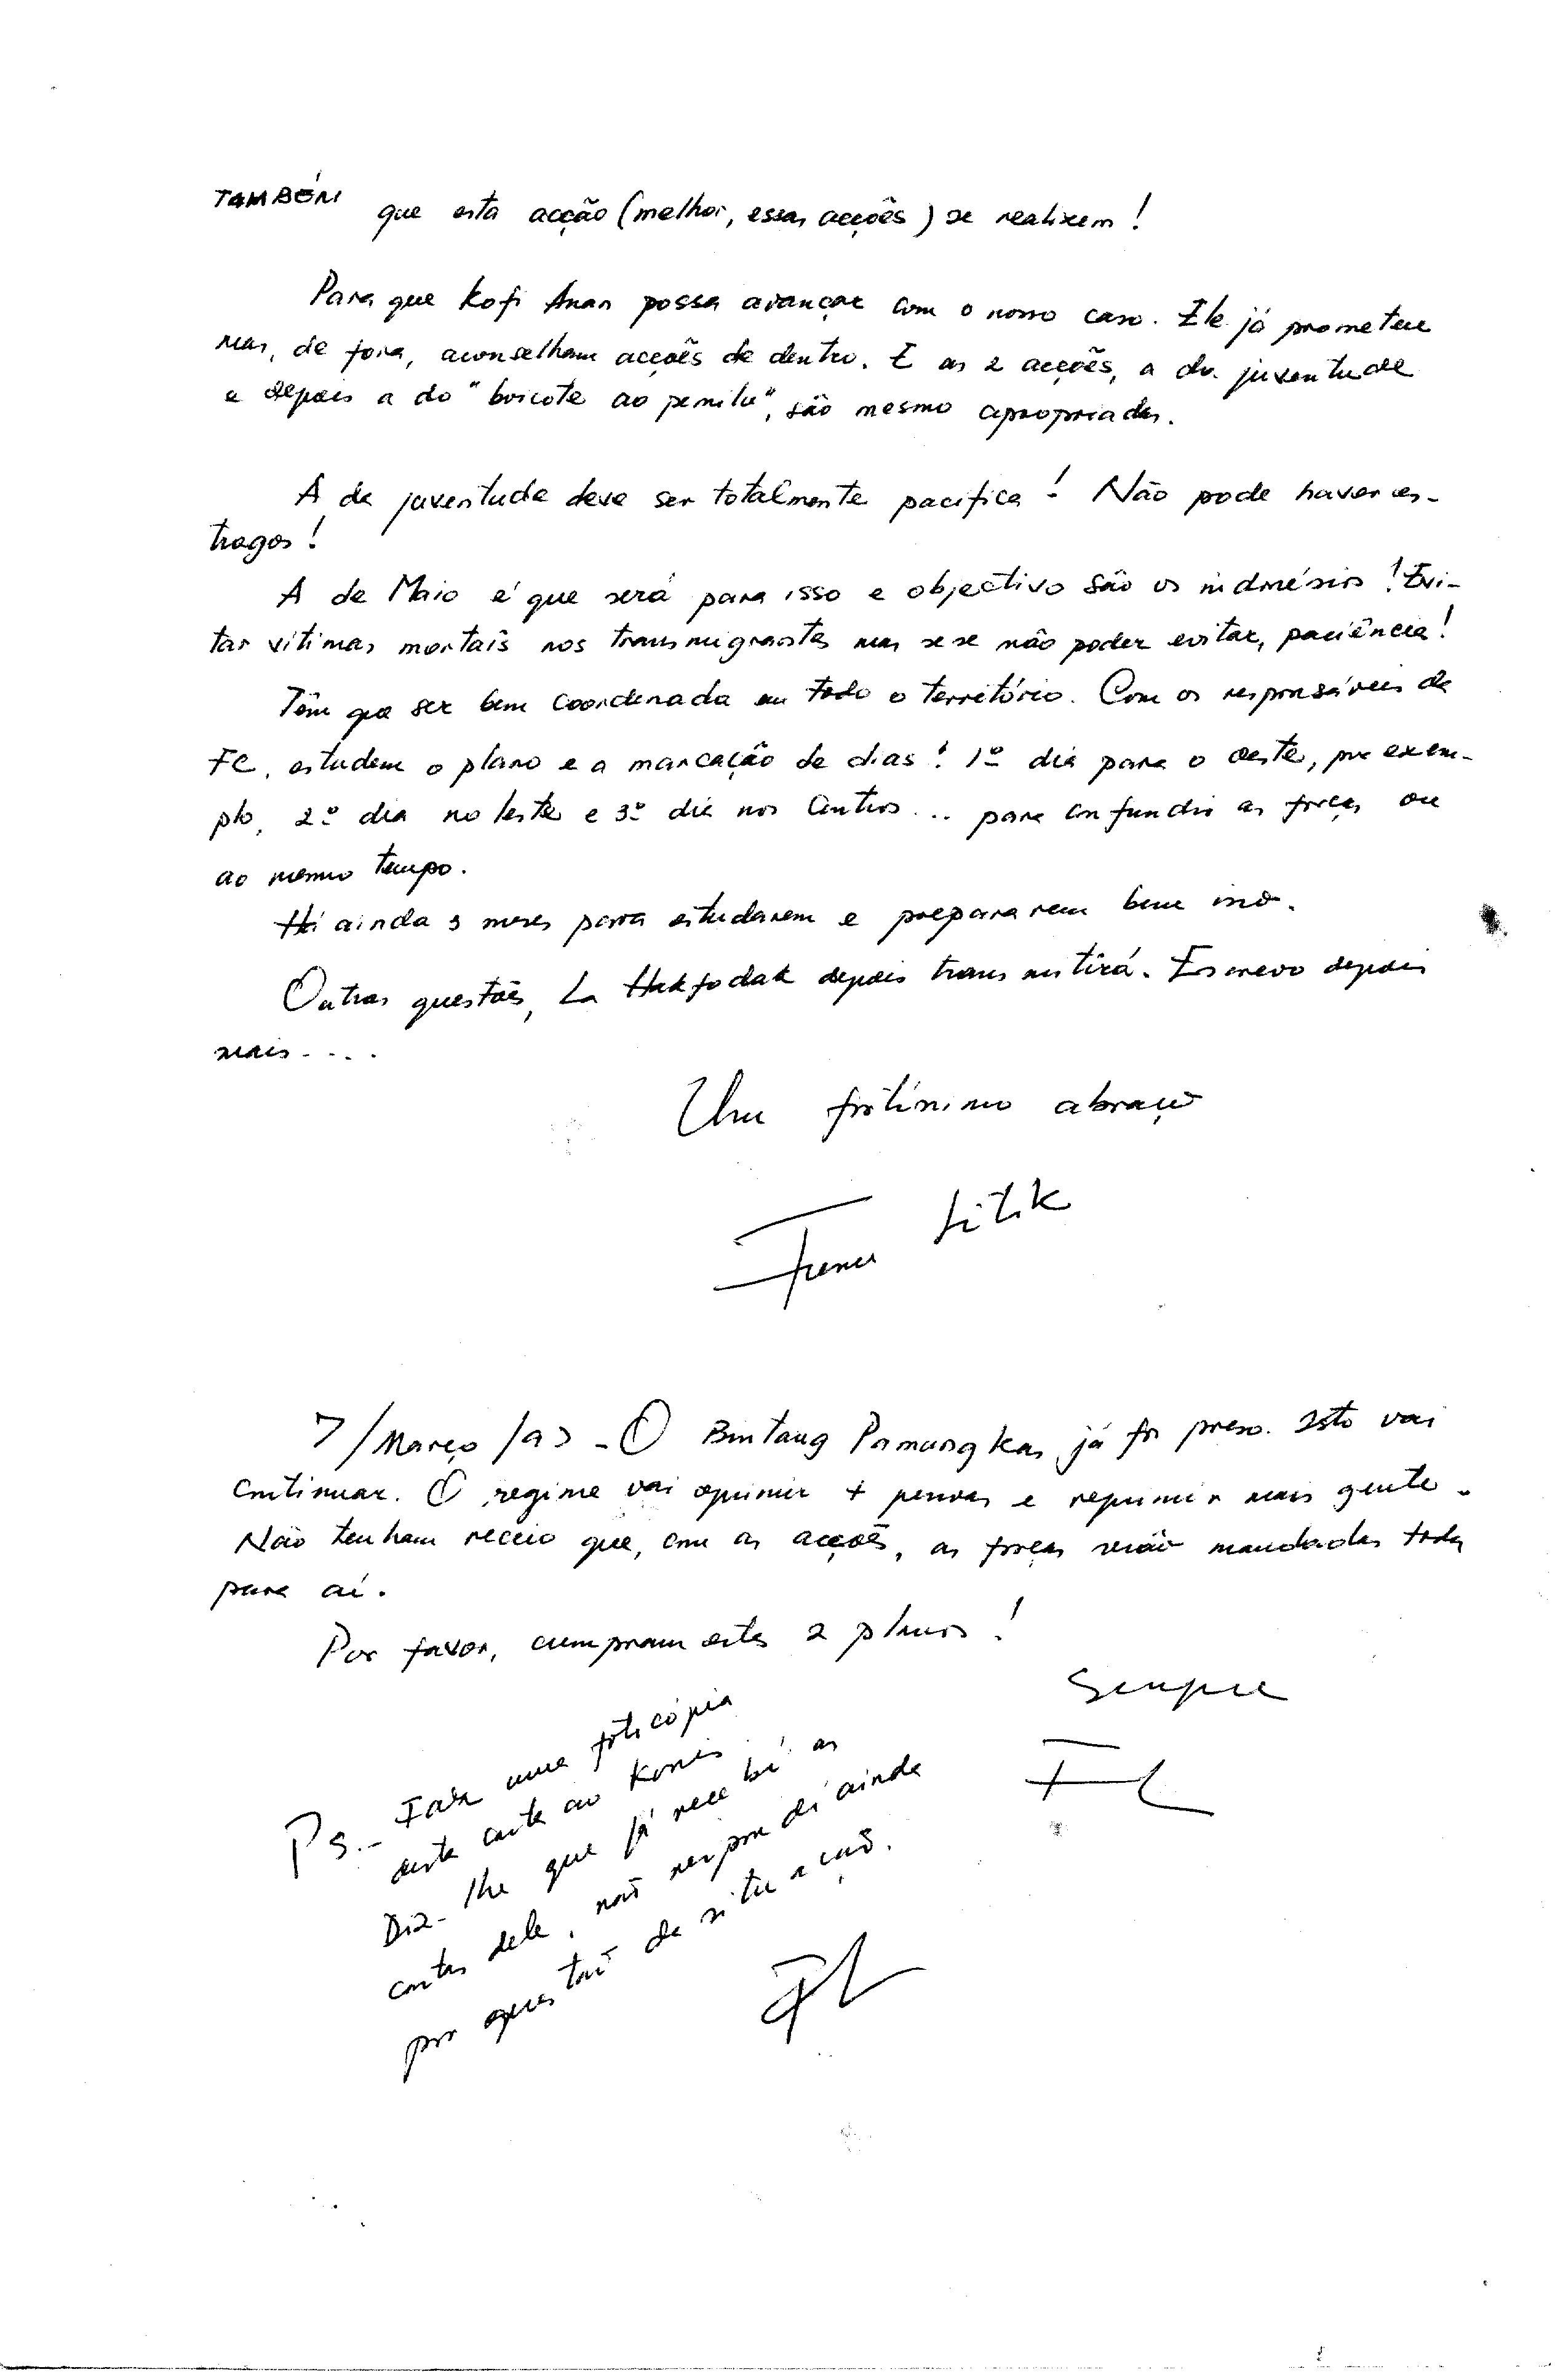 TAMBÉM que esta acção (melhor, essas acções) se realizem!
Para que Kofi Anan possa avançar com o nosso caso. Ele já prometeu
mas, de fora, aconselham acções de dentro. E as 2 acções, a da juventude
e depois a do "boicote ao pemilu", são mesmo apropriadas.
A da juventude deve ser totalmente pacífica! Não pode haver es-
tragos!
A de Maio é que será para isso e objectivo são os indonésios! Evi-
tar vítimas mortais nos transmigrantes mas se se não poder evitar, paciência!
Têm que ser bem coordenada em todo o território. Com os responsáveis da
FC, estudem o plano e a marcação de dias! 1º dia para o oeste, por exem-
plo, 2º dia no leste e 3º dia nos Centros... para confundir as forças ou
ao mesmo tempo.
Há ainda 3 meses para estudarem e prepararem bem isso.
Outras questões, La Hakfodak depois transmitirá. Escrevo depois
mais....
Um fortíssimo abraço
7/Março/97 - O Bintang Pamungkas já foi preso. Isto vai
continuar. O regime vai oprimir + pessoas e reprimir mais gente.
Não tenham receio que, com as acções, as forças serão mandadas todas
para aí.
Por favor, cumpram estes 2 planos!
Sempre
Ps.- Faça uma fotocópia
desta carta ao Konis.
Diz-lhe que já recebi as
cartas dele, não respondi ainda
por questão da situação.